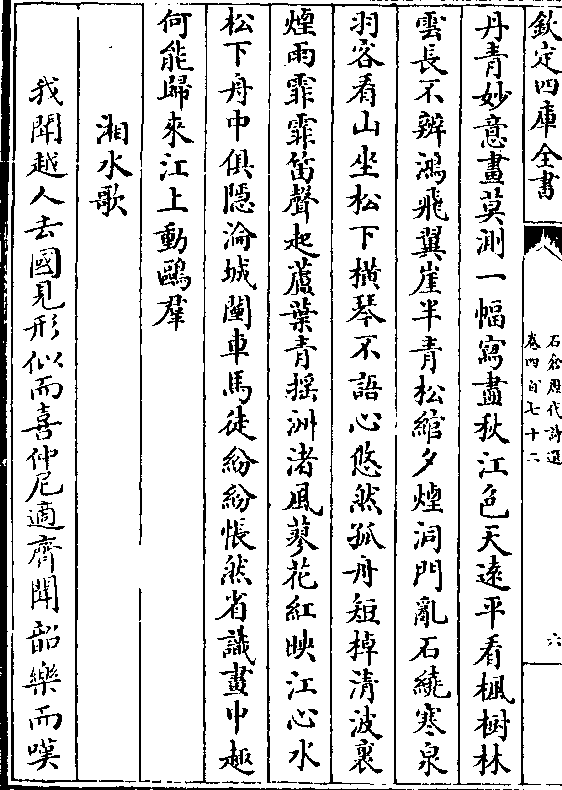 欽定四庫全書
石倉歷代詩選
卷四百七十二
六
丹青妙意畫莫測一幅寫盡秋江色天遠平看楓樹林
雲長不辨鴻飛翼崖半青松綰夕煙洞門亂石繞寒泉
羽客看山坐松下橫琴不語心悠然孤舟短棹清波裏
煙雨霏霏笛聲起蘆葉青揺洲渚風蓼花紅映江心水
松下舟中俱隱淪城闉車馬徒紛紛悵然省識畫中趣
何能歸來江上動鷗羣
湘水歌
我聞越人去國見形似而喜仲尼適齊聞韶樂而嘆